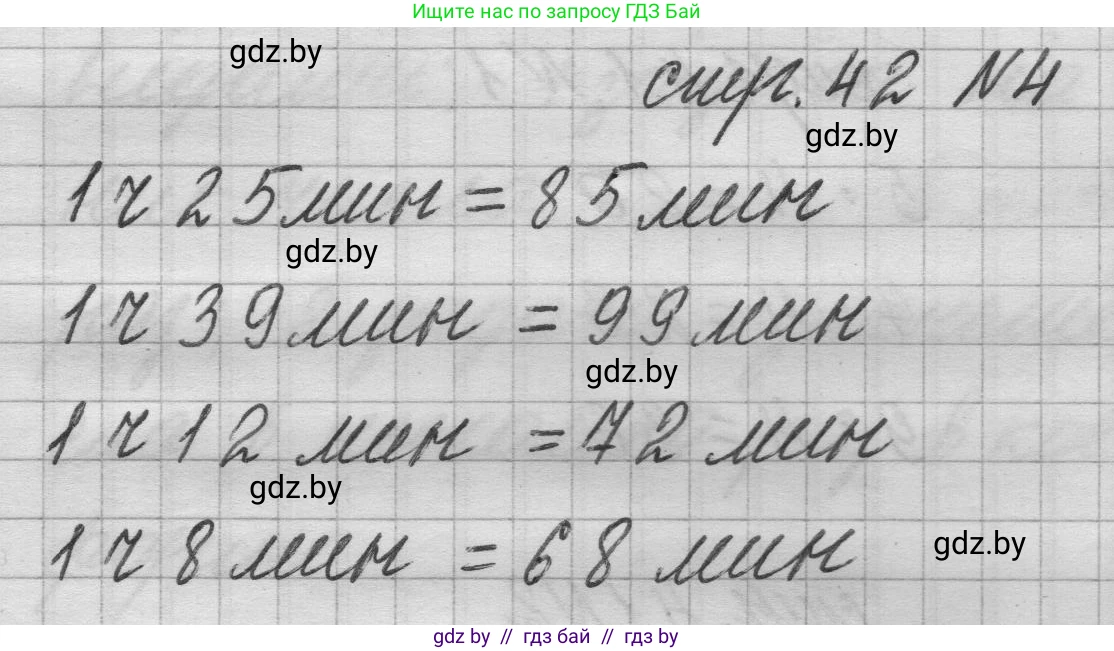 Ищите нас по запросу ГДЗ Бай
gdz.by
стр. 42 N4
gdz.by
1 ч 25 мин = 85 мин
gdz.by
1 ч 39 мин = 99 мин
gdz.by
1 ч 12 мин = 72 мин
gdz.by
1 ч 8 мин = 68 мин
gdz.by
gdz by // гдз бай // гдз by